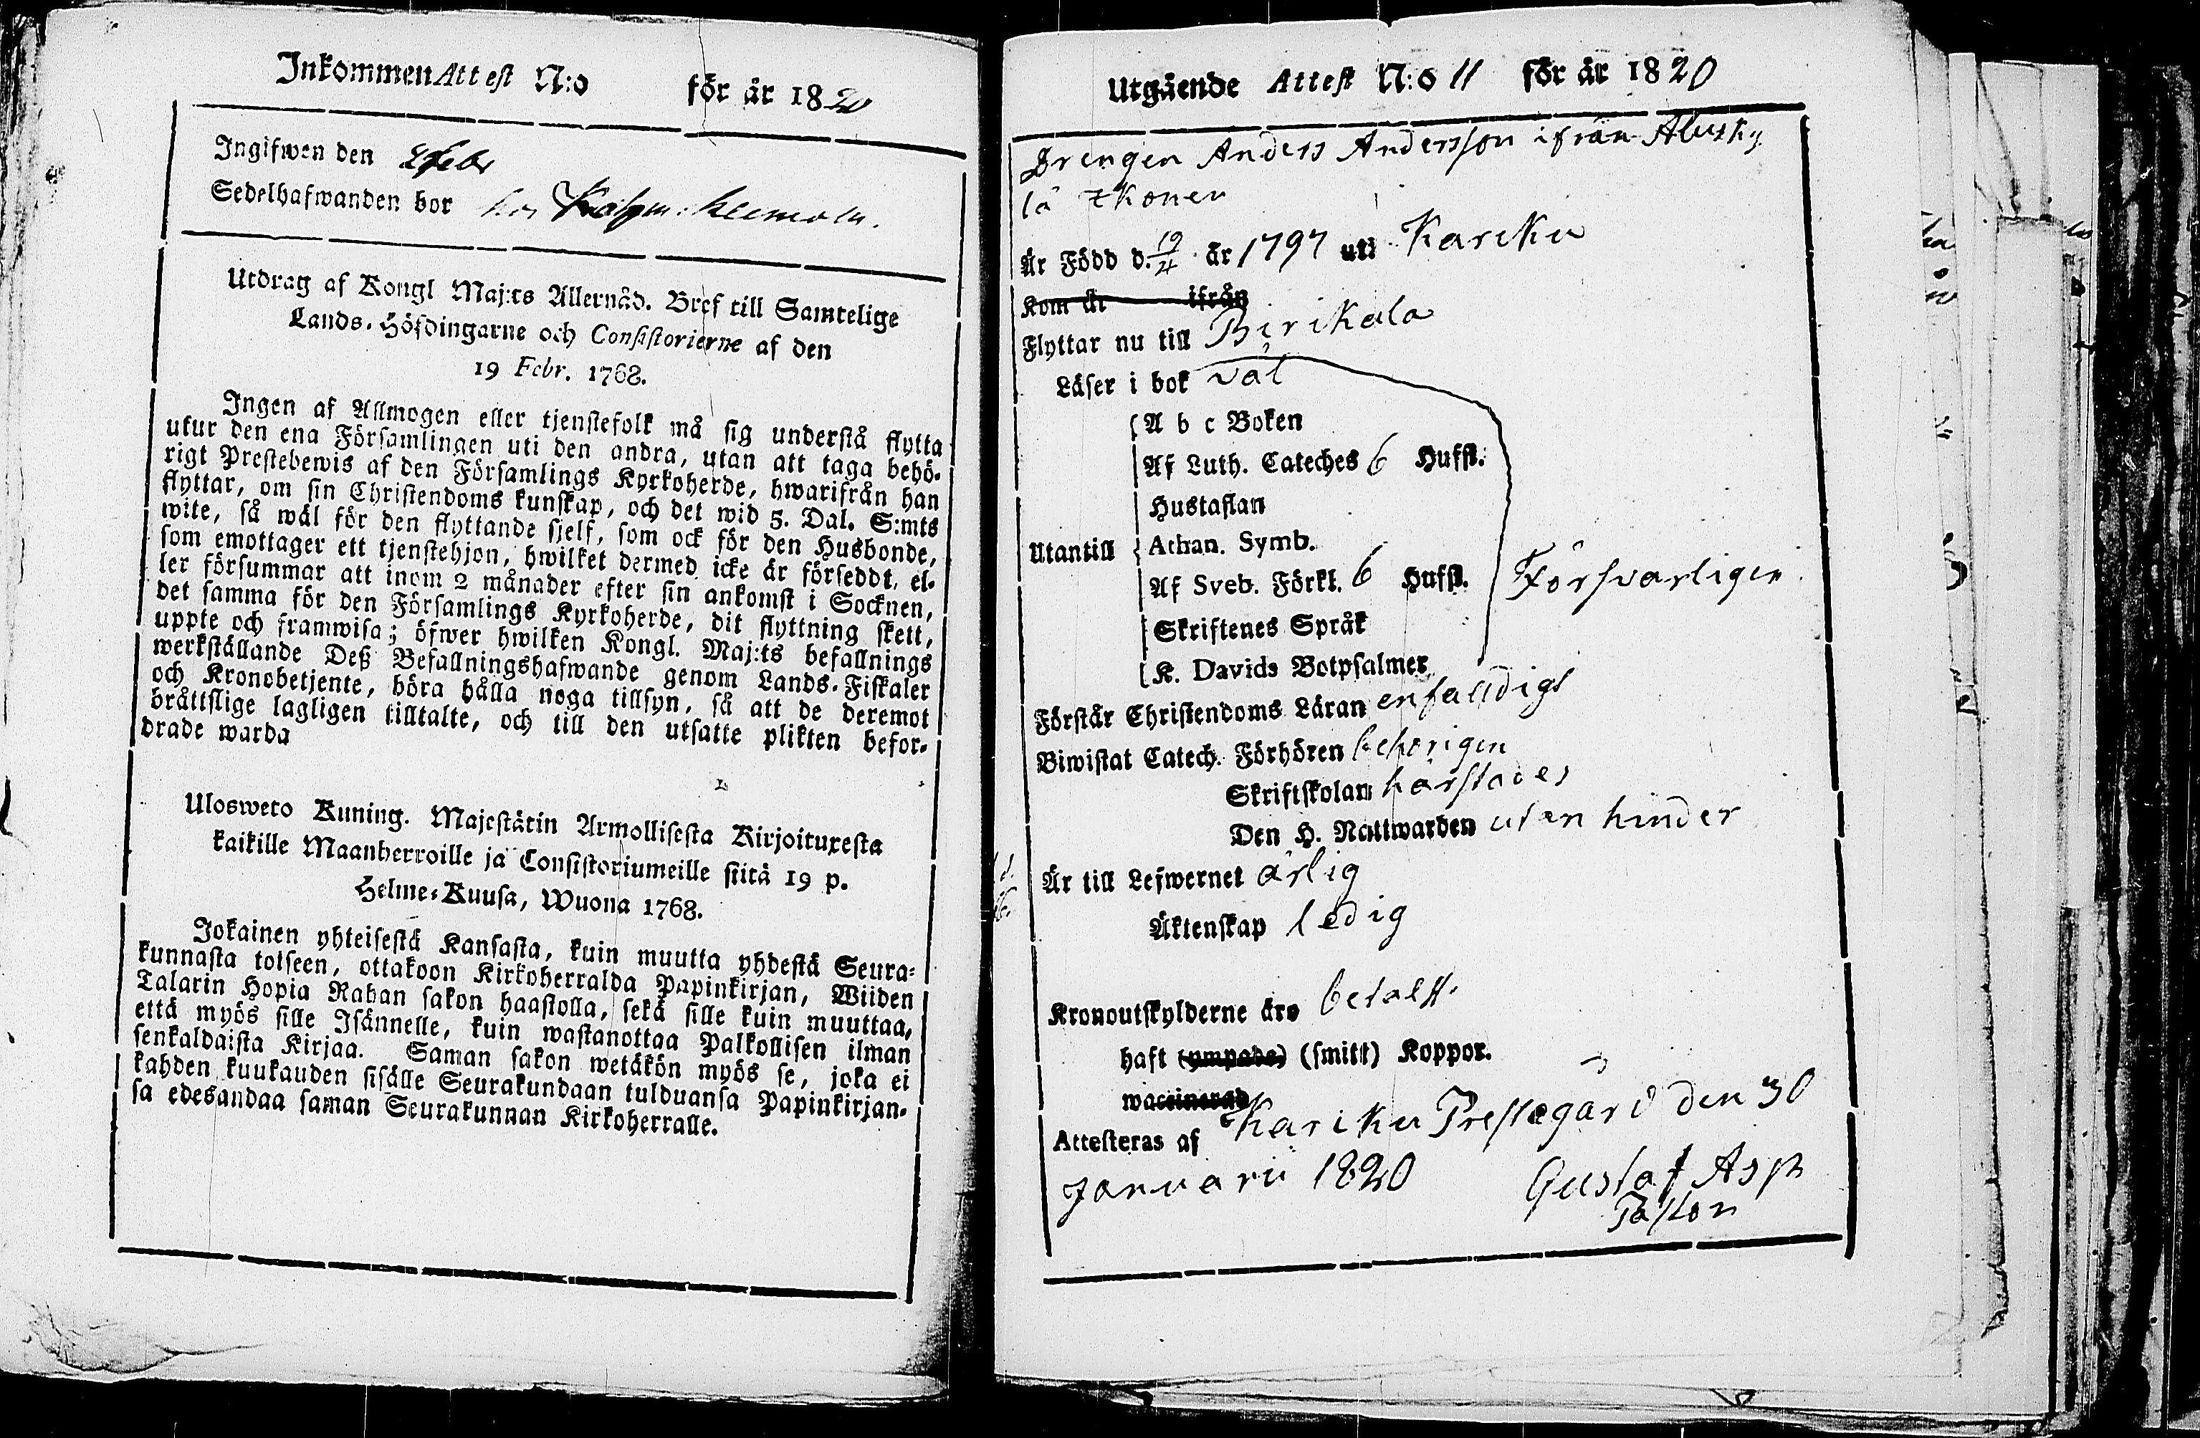 Inkommen Attest N:o för år 1820
Ingifwen den febr
Sedelhafwanden bor hos
Utdrag af Kongl Maj:ts Allernåd. Bref till Samtelige
Lands-Höfdingarne och Consistorierne af den
19 Febr. 1768.
Ingen af Allmogen eller tjenstefolk må sig understå flytta
utur den ena Församlingen uti den andra, utan att taga behö-
rigt Prestebewis af den Församlings Kyrkoherde, hwarifrån han
flyttar, om sin Christendoms kunskap, och det wid 5. Dal. S:mts
wite, så wäl för den flyttande sjelf, som ock för den Husbonde,
som emottager ett tjenstehjon, hwilket dermed icke är försedt, el-
ler försummar att inom 2 månader efter sin ankomst i Socknen,
det samma för den Församlings Kyrkoherde, dit flyttning skett,
uppte och framwisa; öfwer hwilken Kongl. Maj:ts befallnings
werkställande Deß Befallningshafwande genom Lands-Fiskaler
och Kronobetjente, böra hålla noga tillsyn, så att de deremot
bråttslige lagligen tilltalte, och till den utsatte plikten befor-
drade warda
Ulosweto Kuning. Majestätin Armollisesta Kirjoituxesta
kaikille Maanherroille ja Consistoriumeille siitä 19 p.
Helme-Kuusa, Wuona 1768.
Jokainen yhteisestä Kansasta, kuin muutta yhdestä Seura-
kunnasta toiseen, ottakoon Kirkoherralda Papinkirjan, Wiiden
Talarin Hopia Rahan sakon haastolla, sekä sille kuin muuttaa,
että myös sille Isännelle, kuin wastanottaa Palkollisen ilman
senkaldaista Kirjaa. Saman sakon wetäkön myös se, joka ei
kahden kuukauden sisälle Seurakundaan tulduansa Papinkirjan-
sa edesandaa saman Seurakunnan Kirkoherralle.
Utgående Attest N:o 11 för år 1820
Drengen Anders Andersson ifrån
Är Född d. 19/4 år 1797 uti Karcku
Kom år ifrån
Flyttar nu till Birckala
Läser i bok väl
A b c Boken
Af Luth. Cateches 6 Hufst.
Hustaflan
Utantill Athan. Symb.
Af Sveb. Förkl. 6 Hufst. Försvarligen
Skriftenes Språk
K. Davids Botpsalmer
Förstår Christendoms Läran enfaldigt
Biwistat Catech. Förhören behörigen
Skriftskolan härstädes
Den H. Nattwarden utan hinder
Är till Lefwernet ärlig
Äktenskap ledig
Kronoutskylderne äro betalt.
haft (ympade) (smitt) Koppor.
waccinerad
Attesteras af Karcku Prestegård den 30
Januarii 1820 Gustaf Asp
Pastor